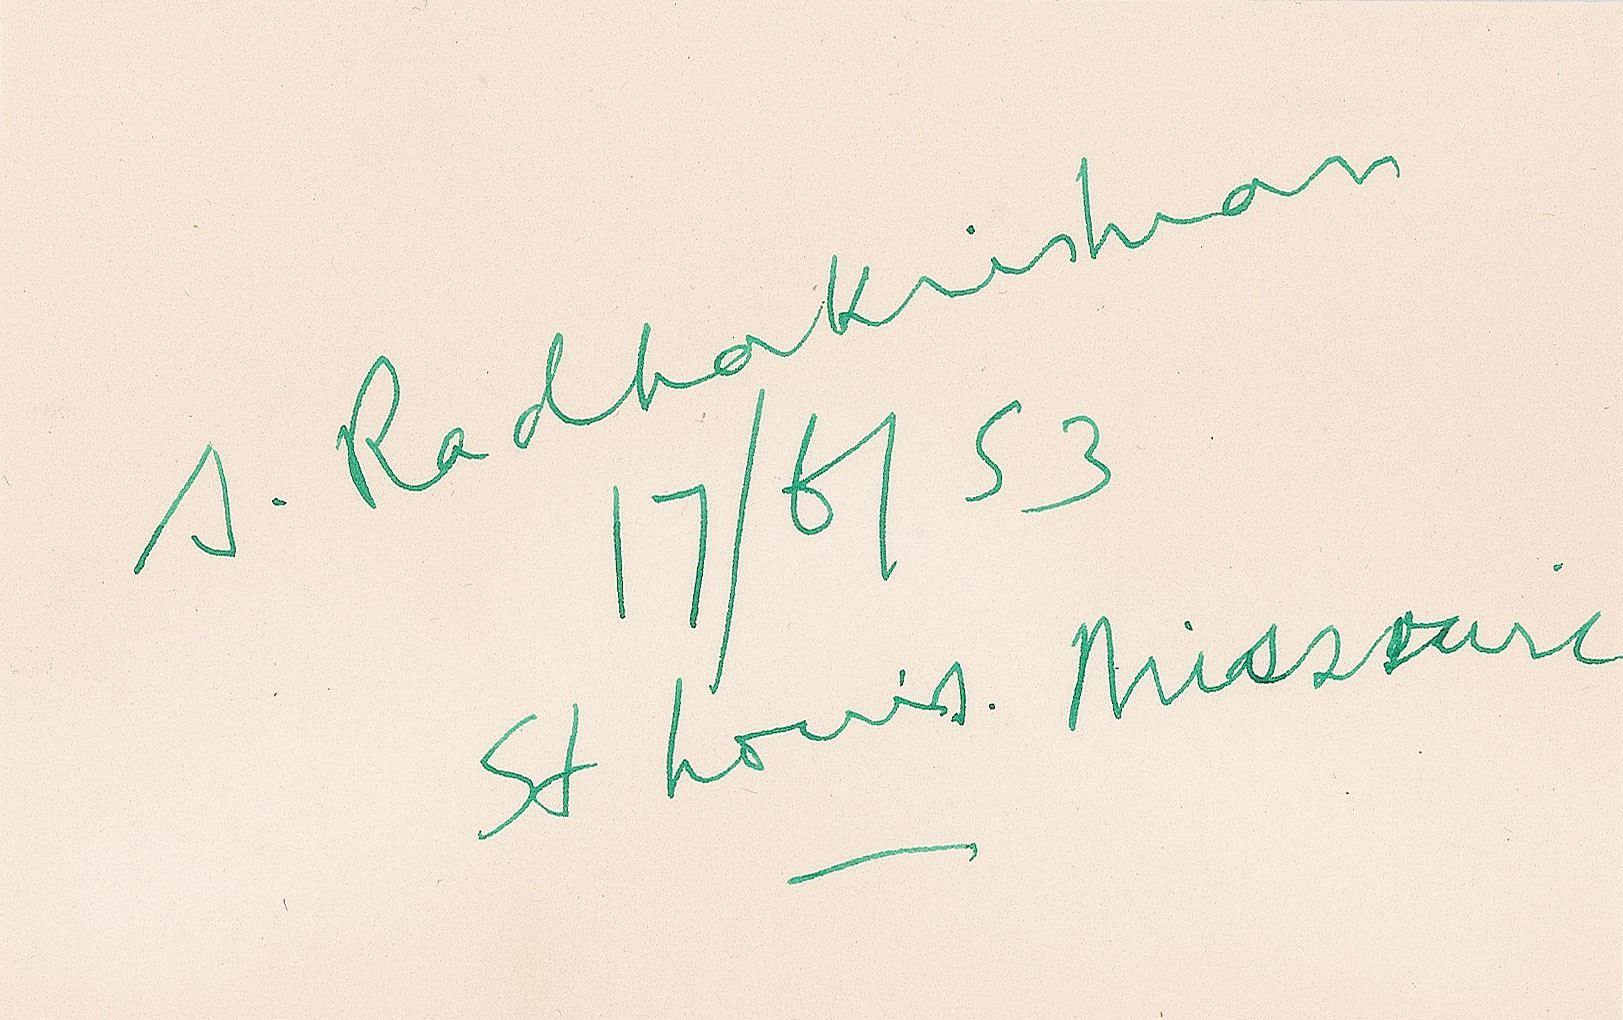 S. Radhakrishnan
17/6/53
St Louis. Missouri